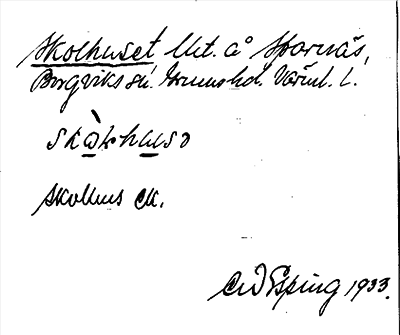 Skolhuset Lht. å Sparnäs,
Borgviks sn. Grums hd. Värml. l.
skɷ̀lhuso
skolhus ek.
CW Esping 1933.